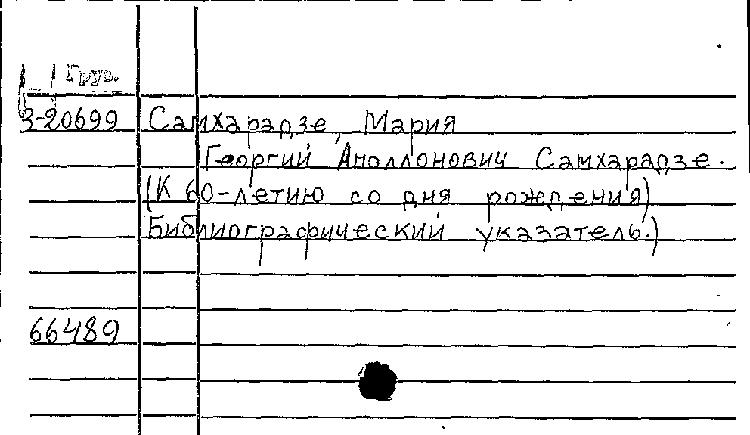 Груз.
3-20699 Самхарадзе, Мария
Георгий Аполлонович Самхарадзе.
(К 60-летию со дня рождения)
Библиографический указатель.)
66489